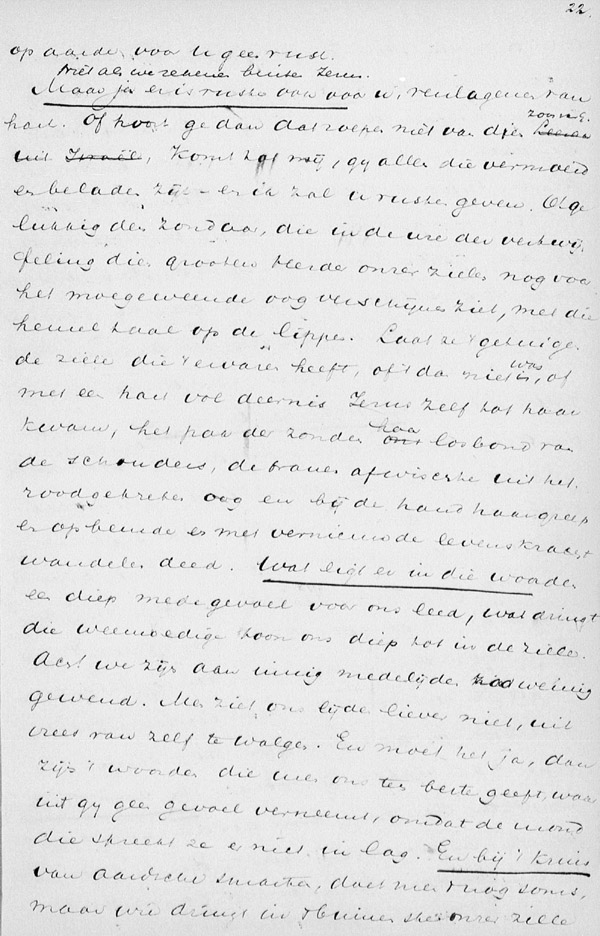 22.
op aarde voor u geen rust.
Niet als we rekenen buiten Jezus.
Maar ja er is ruste ook voor u, verslagenen van
hart. Of hoort ge dan dat roepen niet van dien zoon v. G. Heeren
uit Israël, Komt tot mij, gy allen die vermoeid
en beladen zijt – en ik zal u ruste geven. O! ge
lukkig den zondaar, die in de ure der vertwij
feling dien grooten Herder onzer zielen nog voor
het moegeweende oog verschijnen ziet, met die
hemeltaal op de lippen. Laat ze 't getuigen
de ziele die 't ervaren heeft, of 't da niet was is, of
met een hart vol deernis Jezus zelf tot haar
kwam, het pak der zonden haar ons losbond van
de schouders, de tranen afwischte uit het
roodgekreten oog en bij de hand haar greep
en opbeurde en met vernieuwde levenskracht
wandelen deed. Wat ligt er in die woorden
een diep medegevoel voor ons leed, wat dringt
die weemoedige toon ons diep tot in de ziele.
Acht we zijn aan innig medelijden zoo weinig
gewend. Men ziet ons lijden liever niet, uit
vrees van zelf te walgen. En moet het ja, dan
zijn 't woorden die men ons ten beste geeft, waar
uit gy geen gevoel verneemt, omdat de mond
die spreekt ze er niet in lag. En bij 't kruis
van aardsche smarten, doet men 't nog soms,
maar wie dringt in 't binnenste onzer ziele